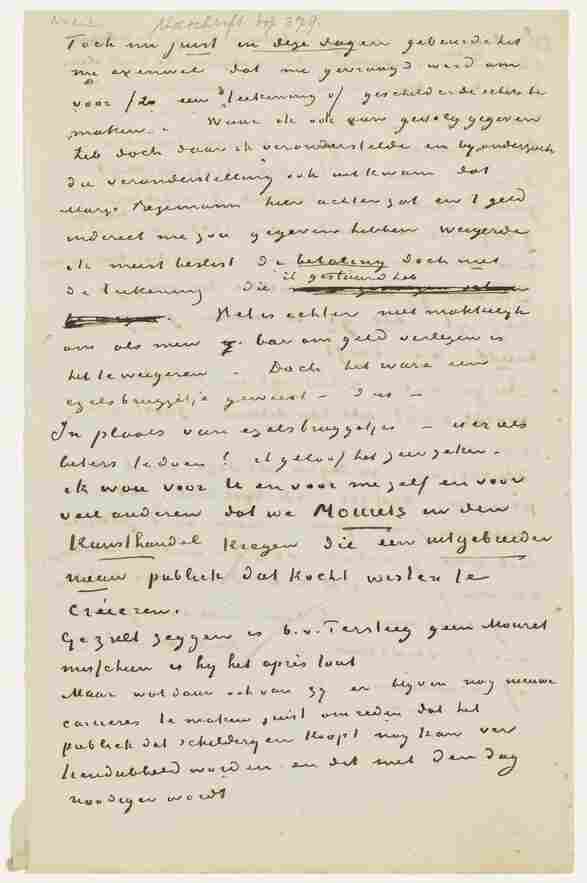 Toch nu juist in deze dagen gebeurde het
me evenwel dat me gevraagd werd om
voor f 20 een teekening of geschilderde schets te
maken. Waar ik ook aan gevolg gegeven
heb doch daar ik veronderstelde en bij onderzoek
die veronderstelling ook uitkwam dat
Margo Begemann hier achter zat en 't geld
indirect me zou gegeven hebben weigerde
ik meest beslist de betaling doch niet
de teekening die ik gestuurd heb
. Het is echter niet makkelijk
om als men bar om geld verlegen is
het te weigeren. Doch het ware een
ezelsbruggetje geweest – dus –
In plaats van ezelsbruggetjes – is er iets
beters te doen? ik geloof het zeer zeker.
ik wou voor U en voor me zelf en voor
veel anderen dat we Mourets in den
Kunsthandel kregen die een uitgebreider
nieuw publiek dat kocht wisten te
creëeren.
Ge zult zeggen is b.v. Tersteeg geen Mouret
misschien is hij het après tout
Maar wat daar ook van zij er blijven nog nieuwe
carrieres te maken juist om reden dat het
publiek dat schilderijen koopt nog kan ver
hondubbeld worden en dit met den dag
noodiger wordt